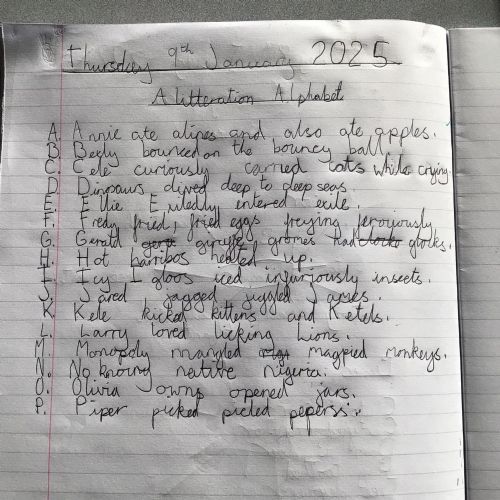 Thursday 9th January 2025
Aliteration Alphabet
A. Annie ate alipes and also ate apples.
B. Beely bounced on the bouncy ball.
C. Cele curiously carried cats while crying.
D. Dinosaurs dived deep to deep seas.
E. Ellie entered exile.
F. Fredy fried, fried eggs freying feroyiously
G. Gerald giraffe gromes had glocks.
H. Hot harribos heated up.
I. Icy Igloos iced injuriously insects.
J. Jared jagged juggled James.
K. Kele kickd kittens and Ketels.
L. Larry loved licking Lions.
M. Monopoly mangled magpied monkeys.
N. No knowing native nigeria.
O. Olivia owns opened jars.
P. Piper picked picled peperss.